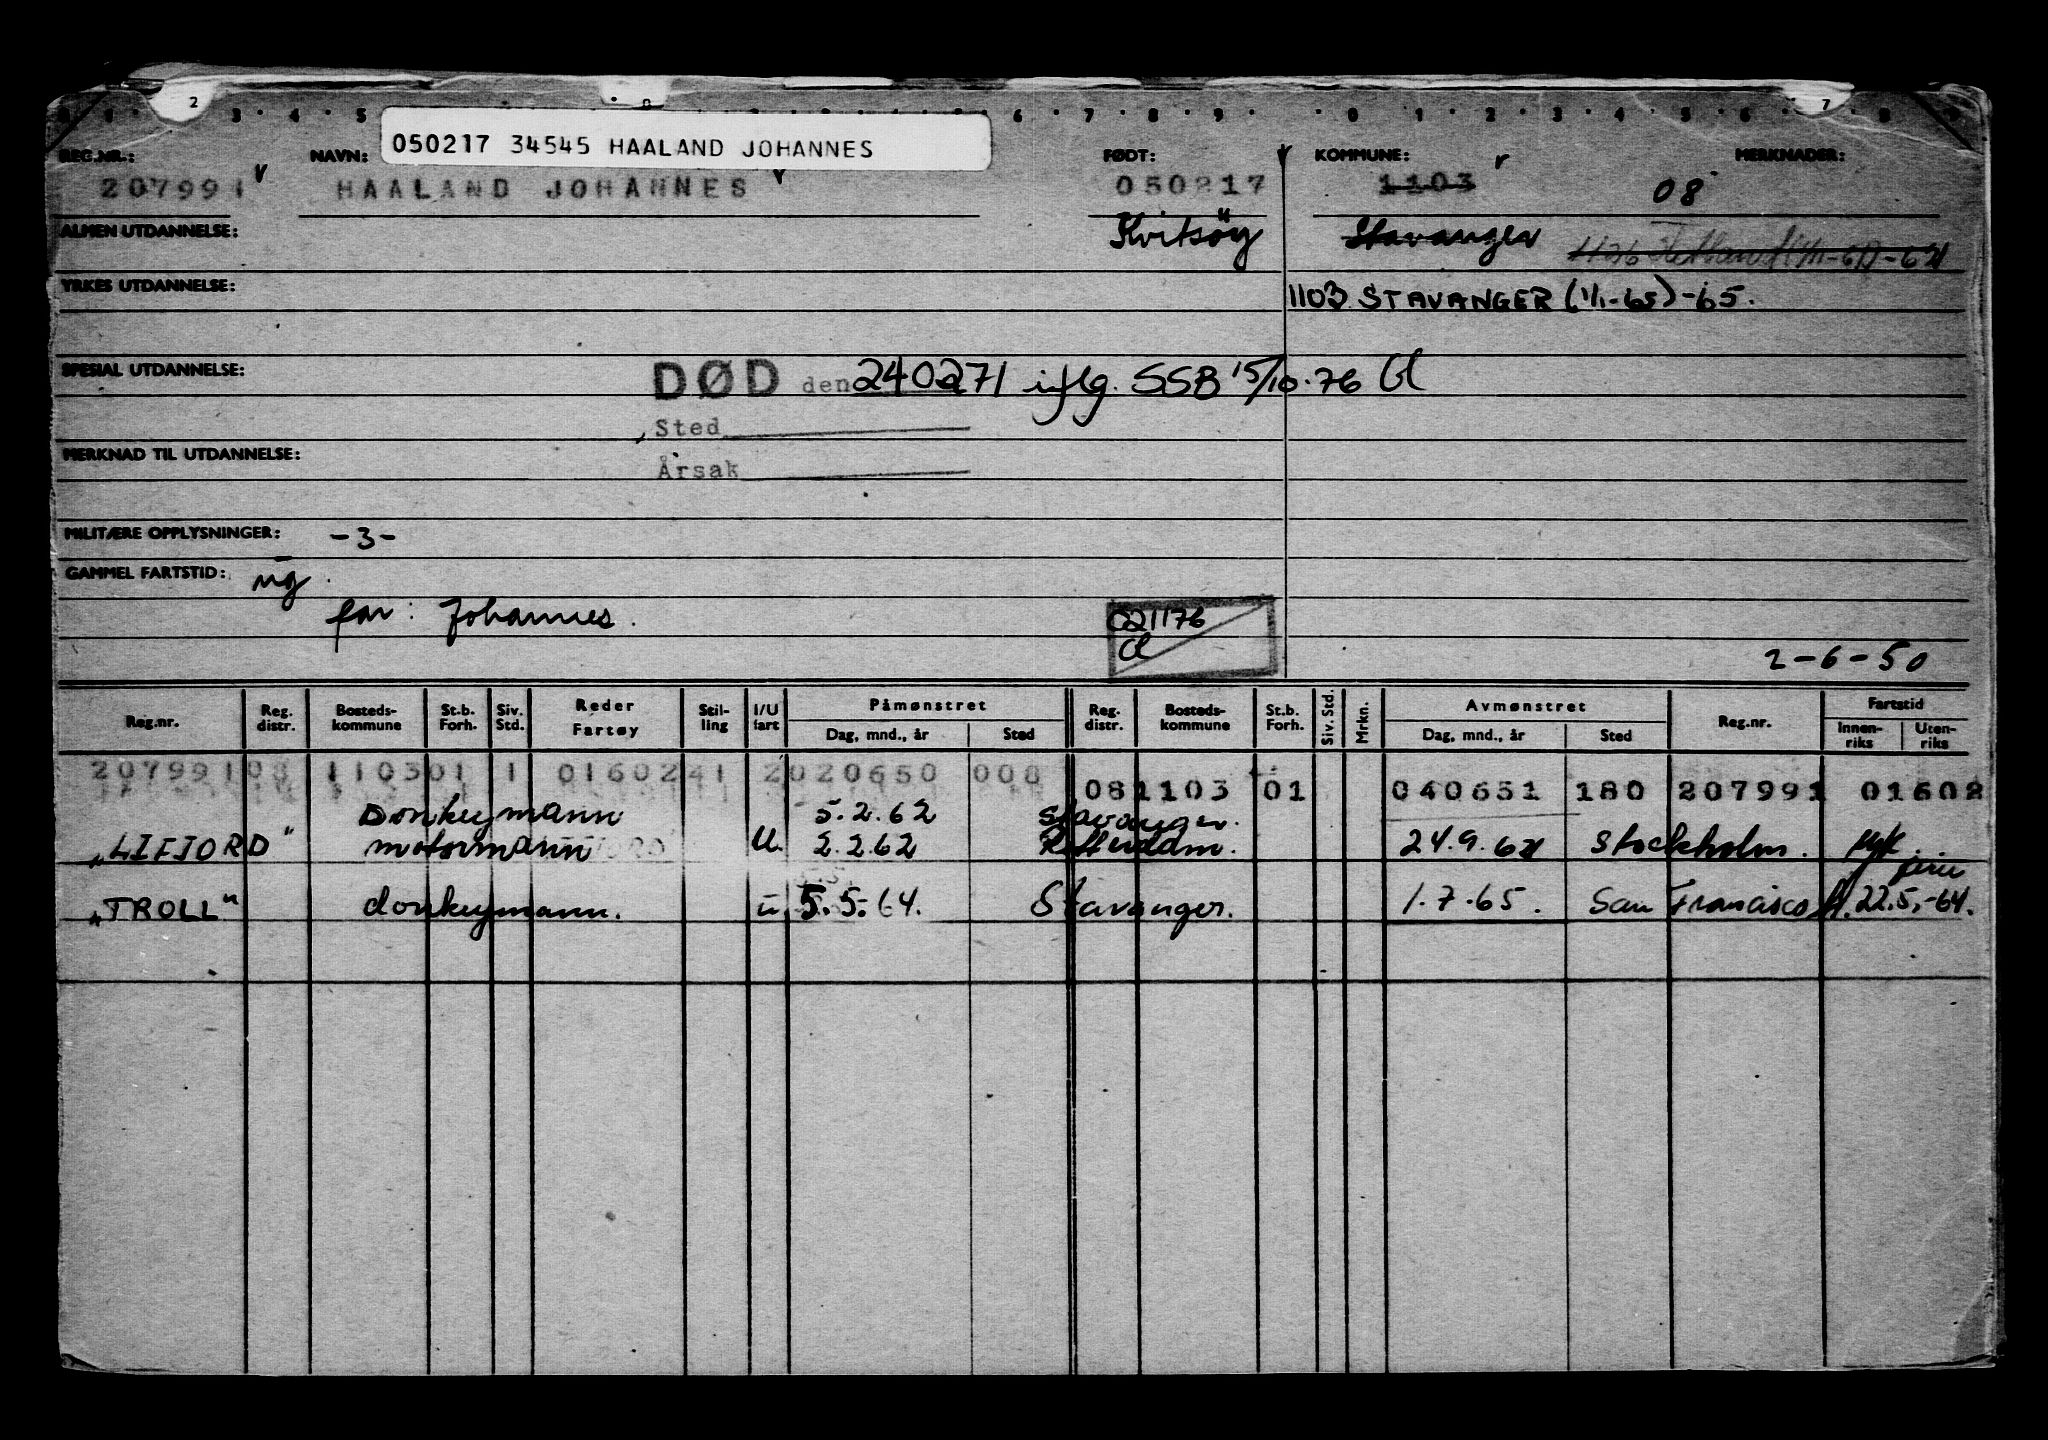 050217 34545 HAALAND JOHANNES
REG.NR.: NAVN: FØDT: KOMMUNE: MERKNADER:
207991 HAALAND JOHANNES 050217 1103 08
ALMEN UTDANNELSE: Kvitsöy Stavanger
YRKES UTDANNELSE: 1103 STAVANGER (1/1-65)-65.
SPESIAL UTDANNELSE: DØD den 240271 iflg. SSB 15/10-76
Sted
MERKNAD TIL UTDANNELSE:
Årsak
MILITÆRE OPPLYSNINGER: -3-
GAMMEL FARTSTID: ug
far: Johannes.
021176
2-6-50
Reg.nr. Reg. distr. Bosteds-kommune St.b. Forh. Siv. Std. Reder Fartøy Stil-ling I/U fart Påmønstret Dag, mnd., år Sted Reg. distr. Bosteds-kommune St.b. Forh. Siv. Std. Mrkn. Avmønstret Dag, mnd., år Sted Reg.nr. Fartstid Innen-riks Uten-riks
207991 08 1103 01 1 0160241 2 020650 008 08 1103 01 040651 180 207991 01602
Donkeymann 5.2.62 Stavanger.
"LIFJORD" motormann U. 2.2.62 Rotterdam. 24.9.62 Stockholm. syk.
ferie
"TROLL" donkeymann. u 5.5.64. Stavanger. 1.7.65. San Francisco 22.5.-64.